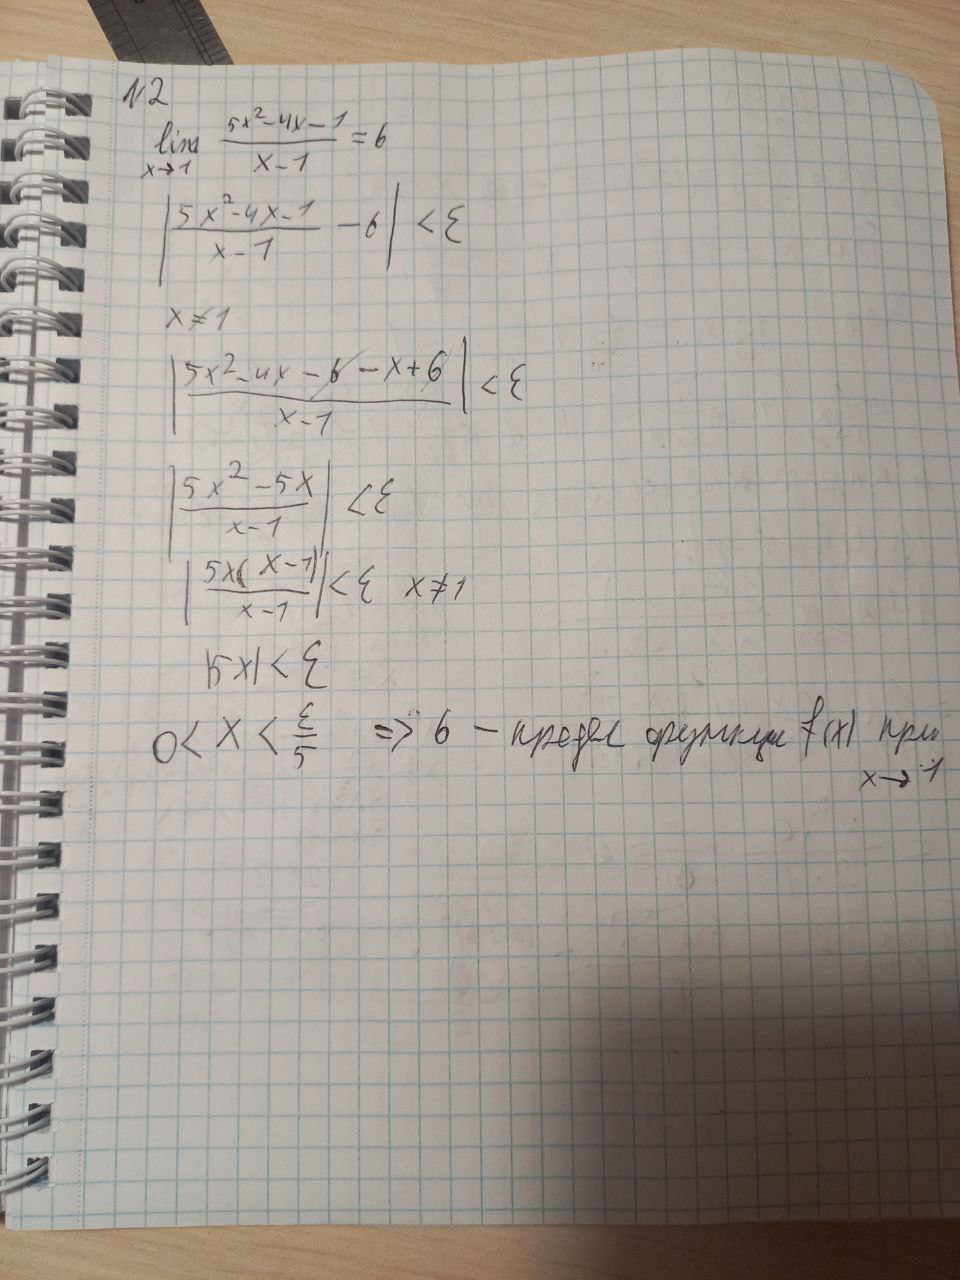 №2
lim x→1 (5x²-4x-1)/(x-1) = 6
|(5x²-4x-1)/(x-1) - 6| < ε
x≠1
|(5x²-4x-6-x+6)/(x-1)| < ε
|(5x²-5x)/(x-1)| < ε
|(5x(x-1))/(x-1)| < ε x≠1
|5x| < ε
0< x < ε/5 => 6 - предел функции f(x) при
x→1